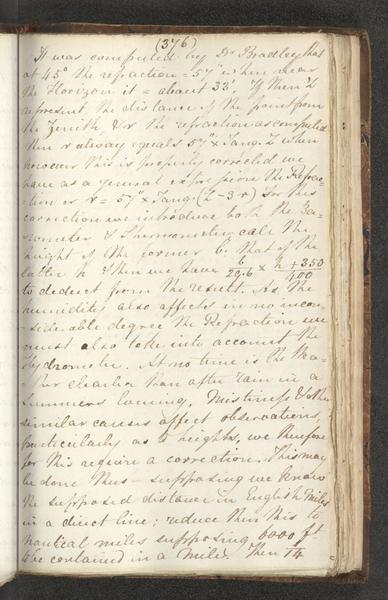 (376)
It was computed by Dr Bradley that
at 45° the refraction = 57" when near
the Horizon it = about 33'. If then Z
represent the distance of the point from
the Zenith, & r the refraction as computed
then r always equals 57" x Tang. Z when
however this is properly corrected we
have as a general expression the Refrac-
tion or r = 57" x Tang. (Z - 3r) For this
correction we introduce both the Ba-
rometer & Thermometer call the
height of the former b. that of the
latter h & then we have b/29.6 x h + 350/400
to deduct from the result. As the
humidity also affects in no incon-
siderable degree the Refraction we
must also take into account the
Hydrometer. At no time is the
clearer than after rain in a
Summers Evening. Mistiness & other
similar causes affect observations,
particularly as to heights, we therefore
for this require a correction. This may
be done thus — supposing we know
the supposed distance in English Miles
in a direct line; reduce then this to
nautical miles supposing 6000 ft
to be contained in a Mile. Then 1/14